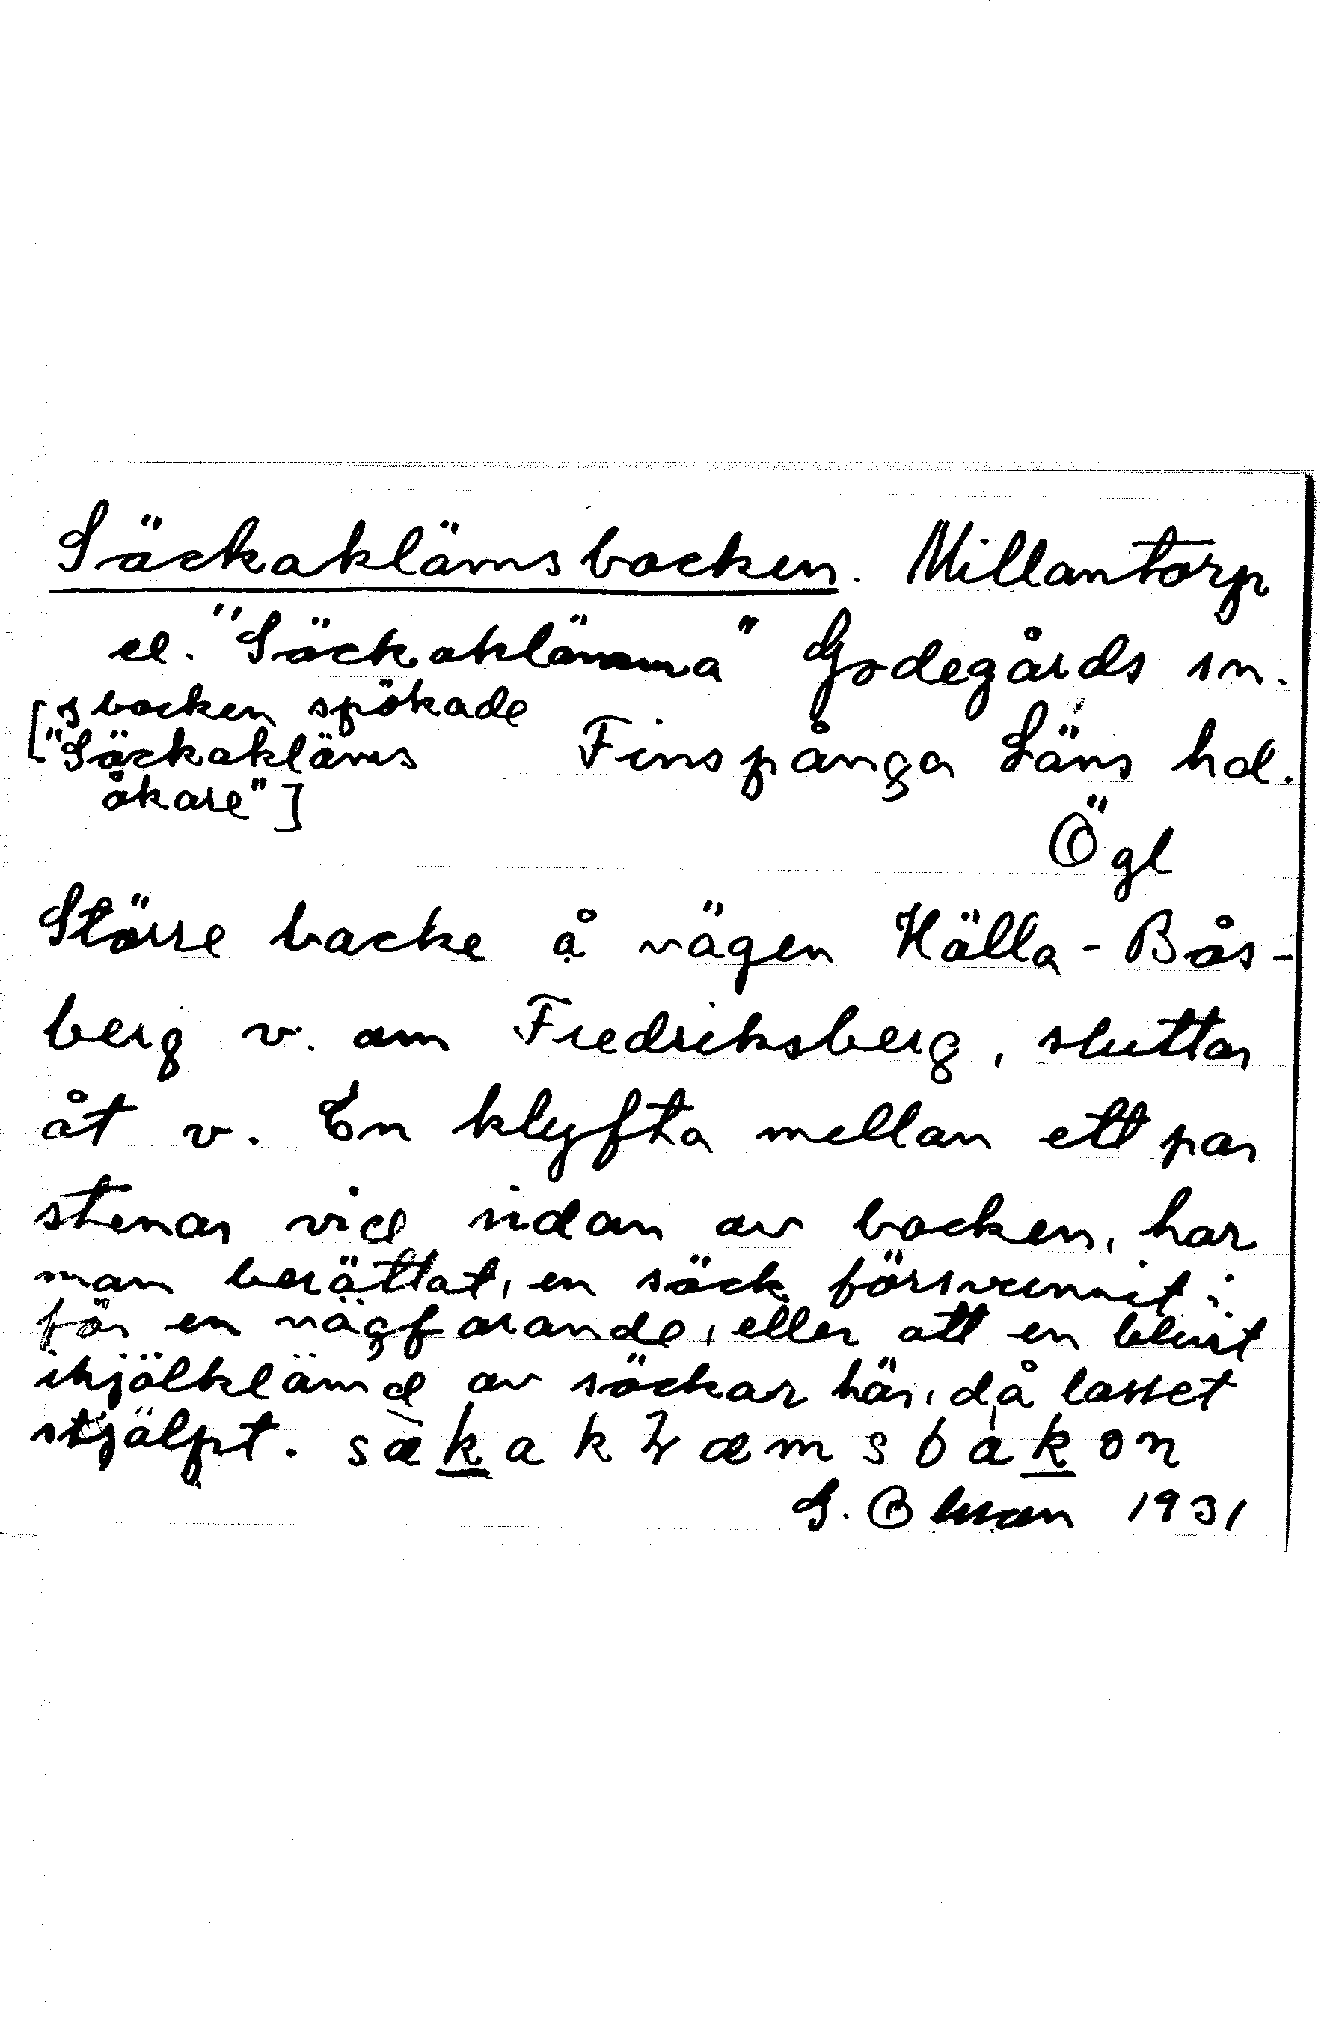 Säckaklämsbacken. Millantorp
el. "Säckaklämma" Godegårds sn.
[I backen spökade
"Säckakläms
åkare"]
Finspånga Läns hd.
Ögl
Större backe å vägen Hälla-Bås-
berg v. om Fredriksberg, sluttar
åt v. En klyfta mellan ett par
stenar vid sidan av backen, har
man berättat, en säck försvunnit i
för en vägfarande, eller att en blivit
ihjälklämd av säckar här, då lasset
stjälpt. sæ̀kakɫæmsbakɔn
G. 1931